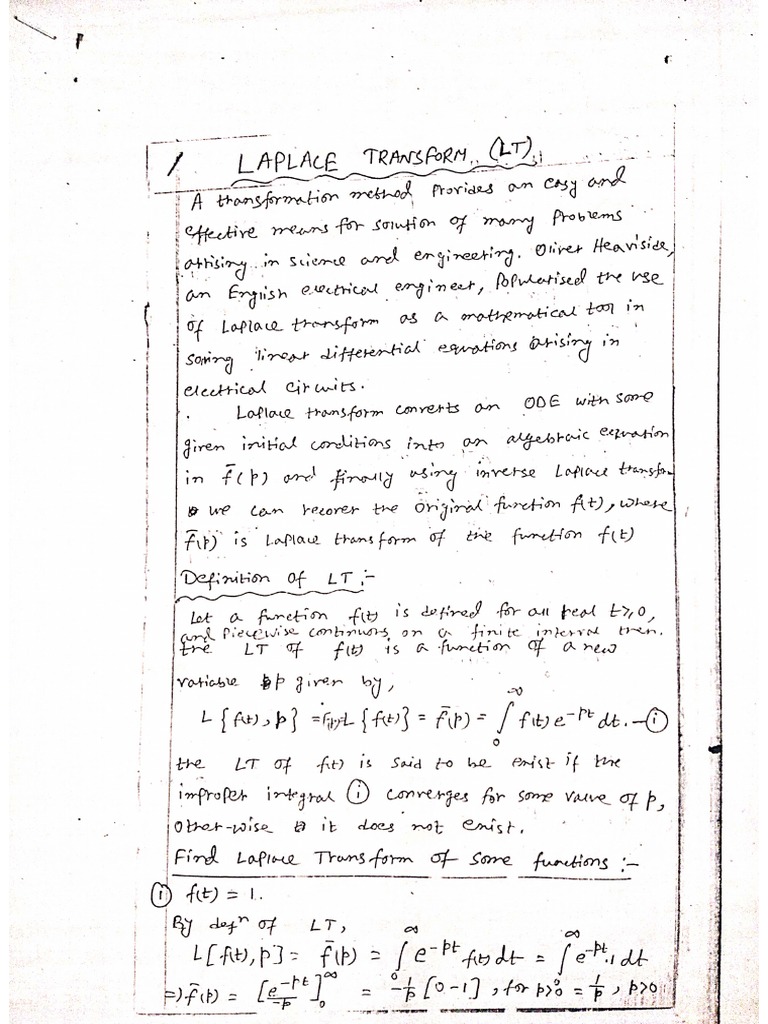 1 LAPLACE TRANSFORM (LT)
A transformation method Provides an easy and
effective means for solution of many Problems
arising in science and engineering. Oliver Heaviside,
an English electrical engineer, Popularised the use
of Laplace transform as a mathematical tool in
solving linear differential equations arising in
electrical circuits.
Laplace transform converts an ODE with some
given initial conditions into an algebraic equation
in f̄(p) and finally using inverse Laplace transfor-
we can recover the original function f(t), where
f̄(p) is Laplace transform of the function f(t)
Definition of LT :-
Let a function f(t) is defined for all real t≥0,
and Piecewise continuous on a finite interval then.
the LT of f(t) is a function of a new
variable p given by,
L{f(t), p} = F(p) = L{f(t)} = f̄(p) = ∫₀^∞ f(t) e^{-pt} dt. — (i)
the LT of f(t) is said to be exist if the
improper integral (i) converges for some value of p,
Other-wise it does not exist.
Find Laplace Transform of some functions :-
(1) f(t) = 1.
By defⁿ of LT,
L[f(t), p] = f̄(p) = ∫₀^∞ e^{-pt} f(t) dt = ∫₀^∞ e^{-pt}.1 dt
=> f̄(p) = [e^{-pt}/-p]₀^∞ = -1/p [0-1], for p>0 = 1/p, p>0